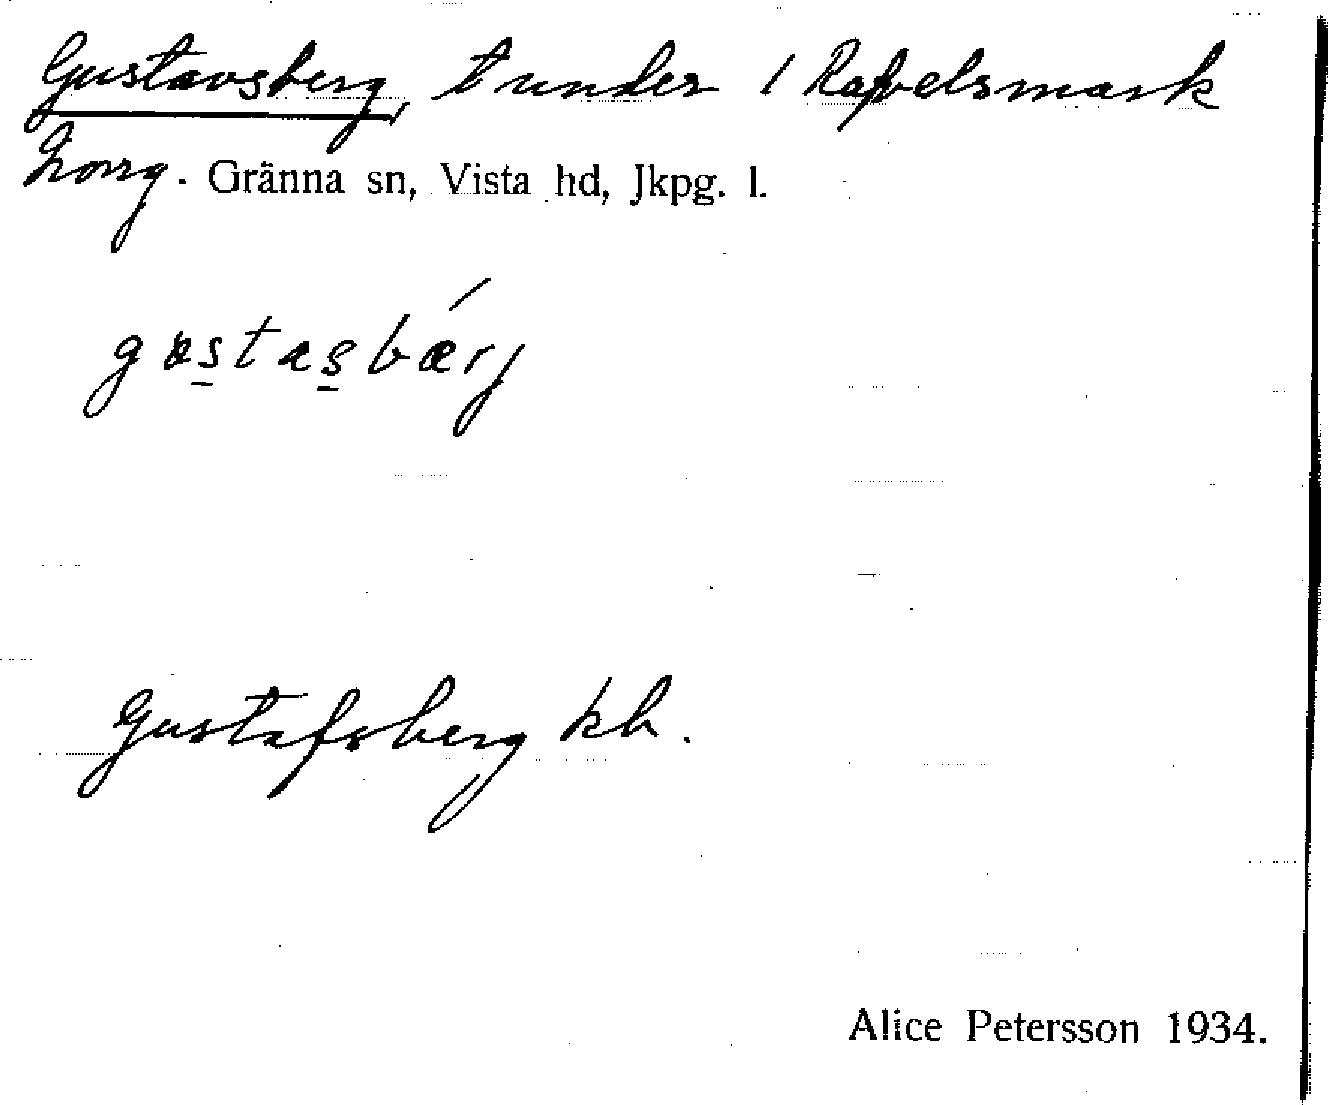 Gustavsberg, t under 1 Rappelsmark
Gränna sn, Vista hd, Jkpg. l.
gustasbærj
Gustafsberg kb.
Alice Petersson 1934.